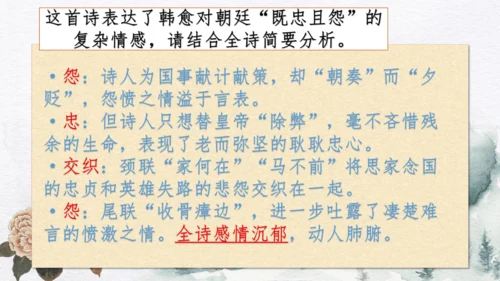 这首诗表达了韩愈对朝廷“既忠且怨”的
复杂情感，请结合全诗简要分析。
• 怨：诗人为国事献计献策，却“朝奏”而“夕
贬”，怨愤之情溢于言表。
• 忠：但诗人只想替皇帝“除弊”，毫不吝惜残
余的生命，表现了老而弥坚的耿耿忠心。
• 交织：颈联“家何在”“马不前”将思家念国
的忠贞和英雄失路的悲怨交织在一起。
• 怨：尾联“收骨瘴边”，进一步吐露了凄楚难
言的愤激之情。全诗感情沉郁，动人肺腑。